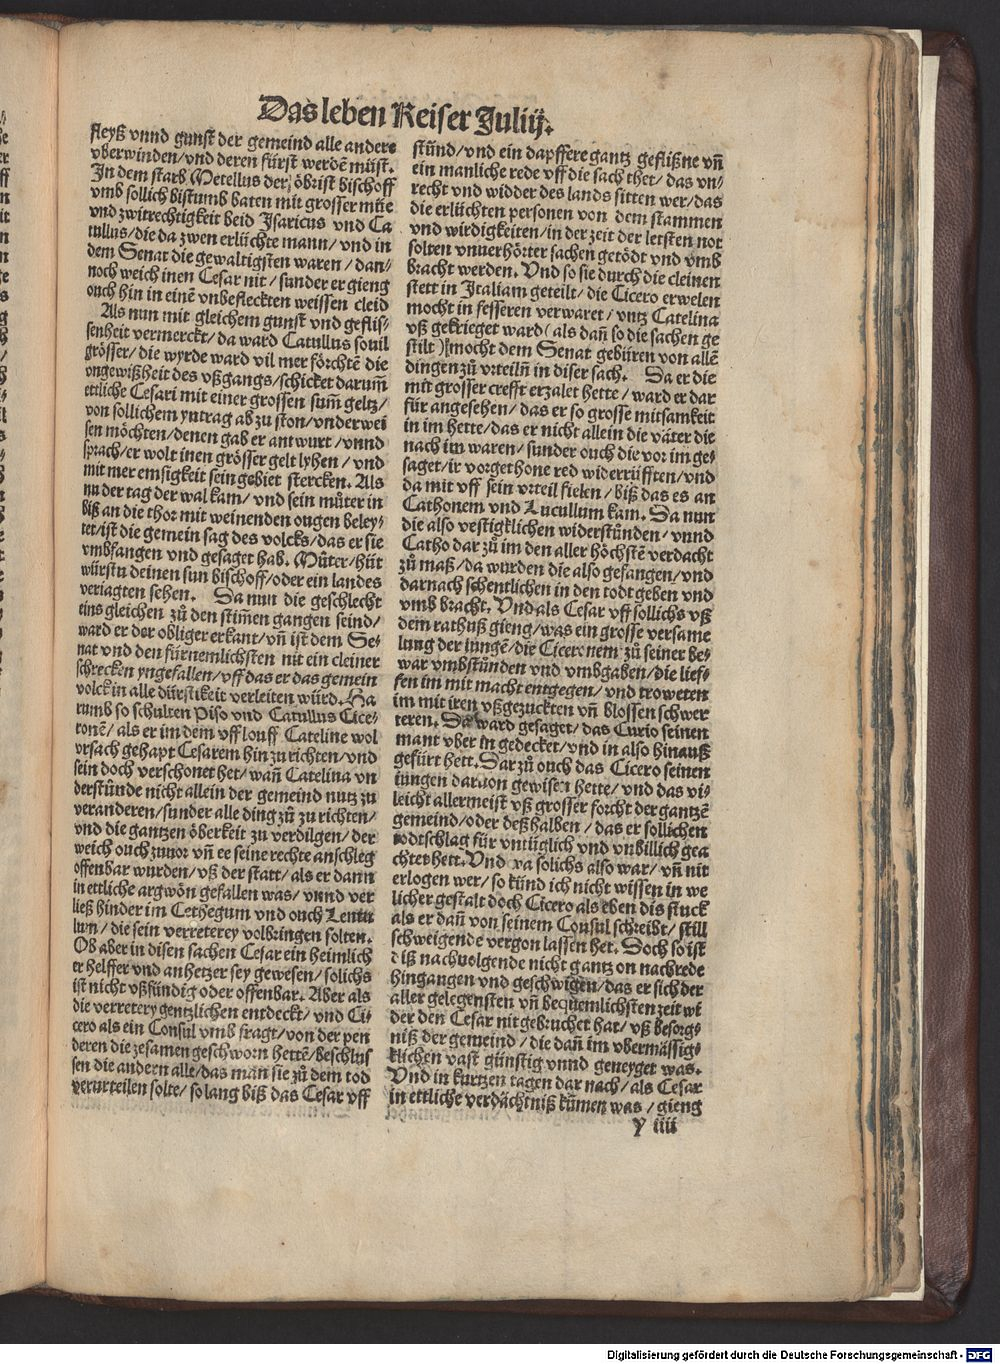 Das leben Keiser Julij.
fleyß vnnd gunst der gemeind alle andere
vberwinden/vnd deren fürst werdē müst.
In dem starb Metellus der öbrist bischoff
vmb sollich bistumb baten mit grosser müe
vnd zwitrechtigkeit beid Isaricus vnd Ca
tullus/die da zwen erlüchte mann/vnd in
dem Senat die gewaltigsten waren/dan/
noch weich inen Cesar nit/sunder er gieng
ouch hin in einē vnbefleckten weissen cleid
Als nun mit gleichem gunst vnd geflis/
senheit vermerckt/da ward Catullus souil
grösser/die wyrde ward vil mer förchtē die
vngewißheit des vßgangs/schicket darum̄
ettliche Cesari mit einer grossen sum̄ geltz/
von sollichem yntrag ab zu ston/vnderwei
sen möchten/denen gab er antwurt/vnnd
sprach/er wolt inen grösser gelt lyhen/vnd
mit mer emsigkeit sein gebiet stercken. Als
nu der tag der wal kam/vnd sein můter in
biß an die thor mit weinenden ougen beley/
tet/ist die gemein sag des volcks/das er sie
vmbfangen vnd gesaget hab. Můter/hüt
würstu deinen sun bischoff/oder ein landes
veriagten sehen. Da nun die geschlecht
eins gleichen zů den stim̄en gangen seind/
ward er der obliger erkant/vn̄ ist dem Se/
nat vnd den fürnemlichsten nit ein cleiner
schrecken yngefallen/vff das er das gemein
volck in alle dürstikeit verleiten würd. Da
rumb so schulten Piso vnd Catullus Cice/
tonē/als er im dem vfflouff Cateline wol
vrsach gehapt Cesarem hin zu richten/vnd
sein doch verschonet het/wan̄ Catelina vn
derstůnde nicht allein der gemeind nutz zu
veranderen/sunder alle ding zů zu richten/
vnd die gantzen öberkeit zu verdilgen/der
weich ouch zuuor vn̄ ee seine rechte anschleg
offenbar wurden/vß der statt/als er dann
in ettliche argwön gefallen was/vnnd ver
ließ hinder im Cethegum vnd ouch Lentu
lum/die sein verreterey volbringen solten.
Ob aber in disen sachen Cesar ein heimlich
er helffer vnd anhetzer sey gewesen/solichs
ist nicht vßfündig oder offenbar. Aber als
die verretery gentzlichen entdeckt/vnd Ci/
cero als ein Consul vmb fragt/von der pen
deren die zesamen geschworn hettē/beschlus
sen die andern alle/das man sie zů dem tod
verurteilen solte/so lang biß das Cesar vff
stůnd/vnd ein dapffere gantz geflißne vn̄
ein manliche rede vff die sach thet/das vn/
recht vnd widder des lands sitten wer/das
die erlüchten personen von dem stammen
vnd wirdigkeiten/in der zeit der letsten not
solten vnuerhörter sachen getödt vnd vmb
bracht werden. Vnd so sie durch die cleinen
stett in Italiam geteilt/die Cicero erwelen
mocht in fesseren verwaret/vntz Catelina
vß gekrieget ward(als dan̄ so die sachen ge
stilt)mocht dem Senat gebüren von allē
dingen zů vrteiln̄ in diser sach. Da er die
mit grosser crefft erzalet hette/ward er dar
für angesehen/das er so grosse mitsamkeit
in im hette/das er nicht allein die väter die
nach im waren/sunder ouch die vor im ge/
saget/ir vorgethone red widerrüfften/vnd
da mit vff sein vrteil fielen/biß das es an
Cathonem vnd Lucullum kam. Da nun
die also vestigklichen widerstůnden/vnnd
Catho dar zů im den aller höchstē verdacht
zů maß/da wurden die also gefangen/vnd
darnach schentlichen in den todt geben vnd
vmb bracht. Vnd als Cesar vff sollichs vß
dem rathuß gieng/was ein grosse versame
lung der iungē/die Ciceronem zů seiner be/
war vmbstůnden vnd vmbgaben/die lief/
fen im mit macht entgegen/vnd troweten
im mit iren vßgezuckten vn̄ blossen schwer
teren. Da ward gesaget/das Curio seinen
mant vber in gedecket/vnd in also hinauß
gefürt hett. Dar zů ouch das Cicero seinen
iungen daruon gewisen hette/vnd das vi/
leicht allermeist vß grosser forcht der gantzē
gemeind/oder deßhalben/das er sollichen
todtschlag für vntüglich vnd vnbillich gea
chtet hett. Vnd da solichs also war/vn̄ nit
erlogen wer/so künd ich nicht wissen in we
licher gestalt doch Cicero als eben dis stuck
als er dan̄ von seinem Consul schreibt/still
schweigende vergon lassen het. Doch so ist
diß nachuolgende nicht gantz on nachrede
hingangen vnd geschwigen/das er sich der
aller gelegensten vn̄ bequemlichsten zeit wi
der den Cesar nit gebruchet hat/vß besorg/
niß der gemeind/die dan̄ im vbermässig/
klichen vast günstig vnnd geneyget was.
Vnd in kurtzen tagen dar nach/als Cesar
in ettliche verdächtniß kum̄en was/gieng
y iiii
Digitalisierung gefördert durch die Deutsche Forschungsgemeinschaft - DFG